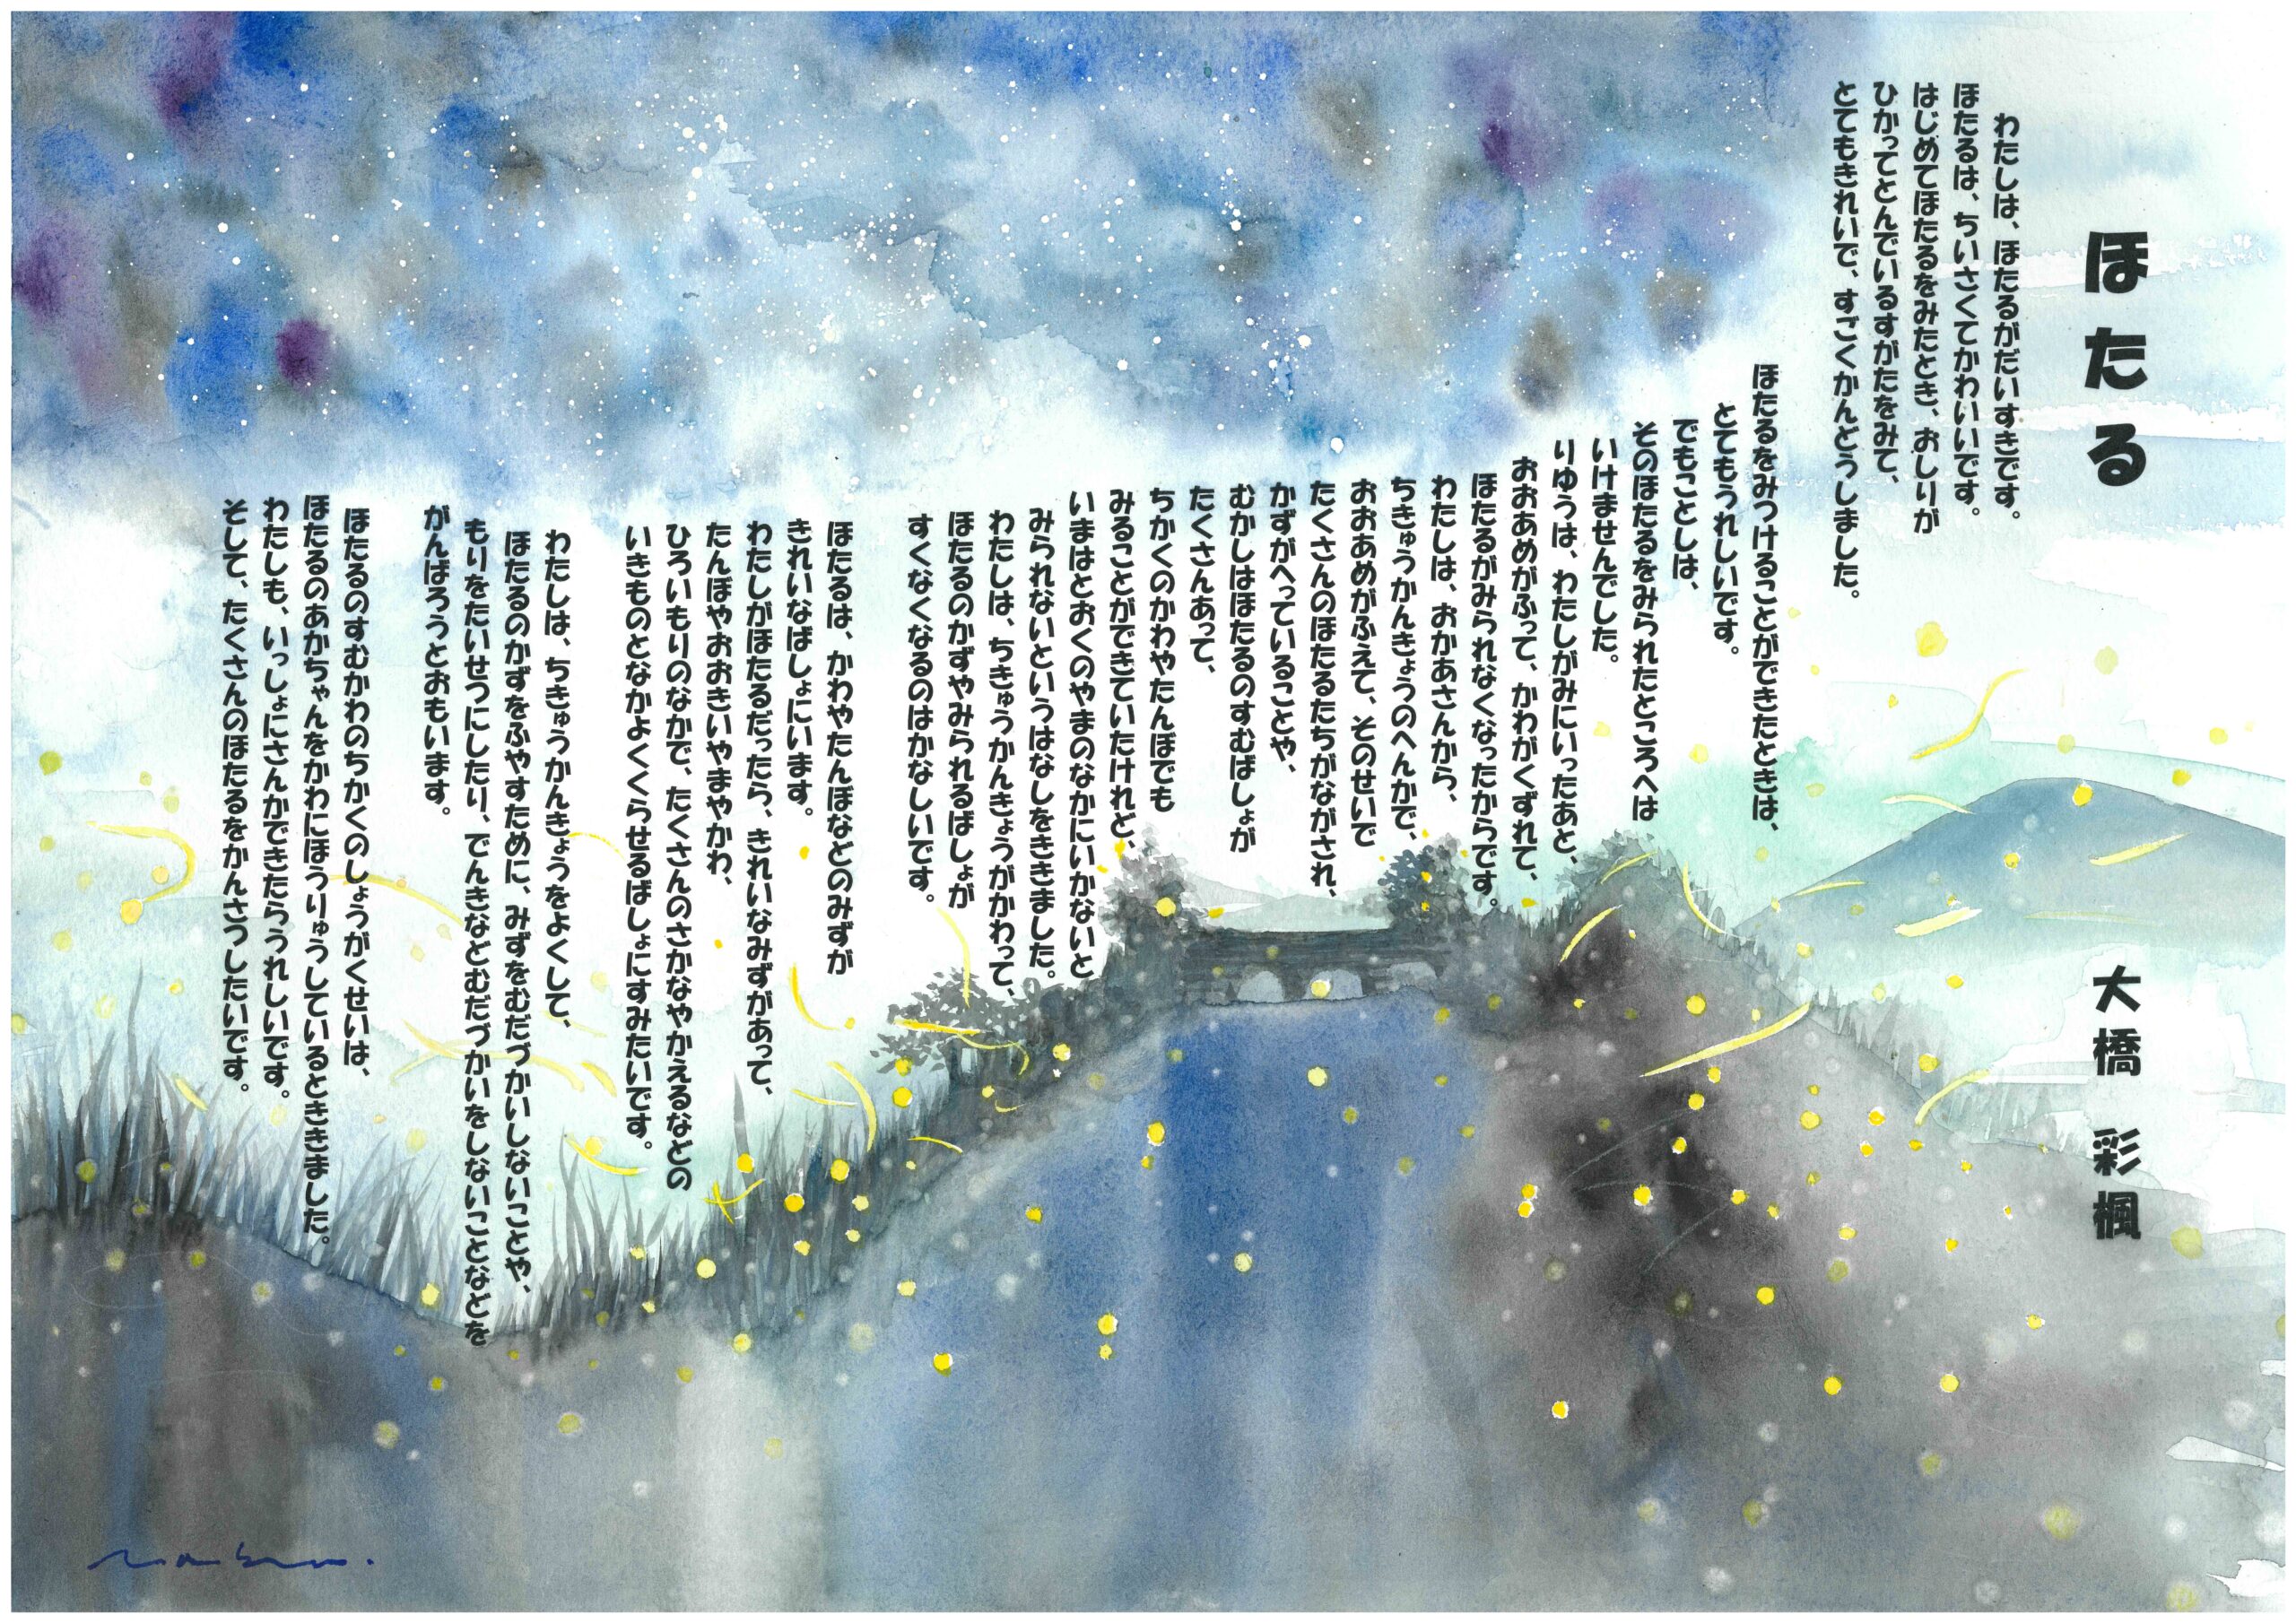 ほたる
大橋 彩楓
わたしは、ほたるがだいすきです。
ほたるは、ちいさくてかわいいです。
はじめてほたるをみたとき、おしりが
ひかってとんでいるすがたをみて、
とてもきれいで、すごくかんどうしました。
ほたるをみつけることができたときは、
とてもうれしいです。
でもことしは、
そのほたるをみられたところへは
いけませんでした。
りゆうは、わたしがみにいったあと、
おおあめがふって、かわがくずれて、
ほたるがみられなくなったからです。
わたしは、おかあさんから、
ちきゅうかんきょうのへんかで、
おおあめがふえて、そのせいで
たくさんのほたるたちがながされ、
かずがへっていることや、
むかしはほたるのすむばしょが
たくさんあって、
ちかくのかわやたんぼでも
みることができていたけれど、
いまはとおくのやまのなかにいかないと
みられないというはなしをききました。
わたしは、ちきゅうかんきょうがかわって、
ほたるのかずやみられるばしょが
すくなくなるのはかなしいです。
ほたるは、かわやたんぼなどのみずが
きれいなばしょにいます。
わたしがほたるだったら、きれいなみずがあって、
たんぼやおおきいやまやかわ、
ひろいもりのなかで、たくさんのさかなやかえるなどの
いきものとなかよくくらせるばしょにすみたいです。
わたしは、ちきゅうかんきょうをよくして、
ほたるのかずをふやすために、みずをむだづかいしないことや、
もりをたいせつにしたり、でんきなどむだづかいをしないことなどを
がんばろうとおもいます。
ほたるのすむかわのちかくのしょうがくせいは、
ほたるのあかちゃんをかわにほうりゅうしているとききました。
わたしも、いっしょにさんかできたらうれしいです。
そして、たくさんのほたるをかんさつしたいです。